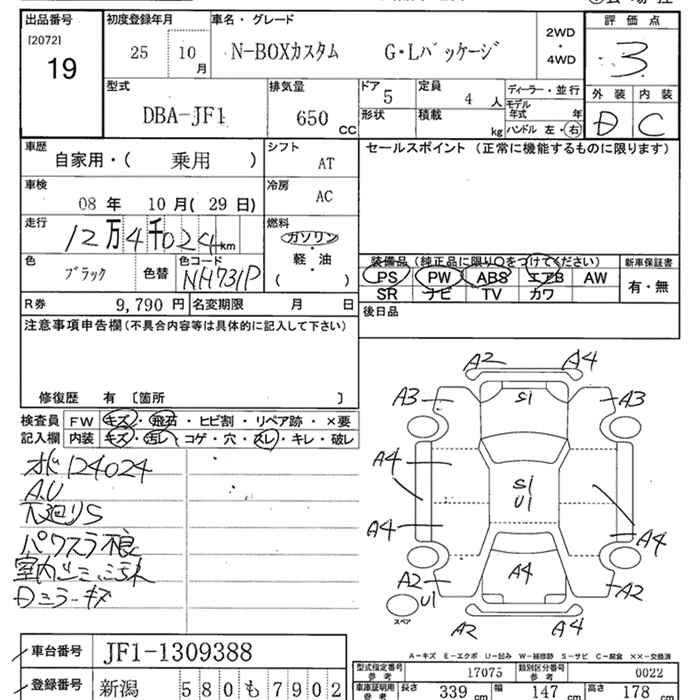 出品番号
[2072]
19
初度登録年月
25 10月
車名・グレード
N-BOXカスタム G・Lパッケージ
2WD
・
4WD
評価点
3
外装 内装
D C
型式
DBA-JF1
排気量
650 CC
ドア 5
形状
定員 4 人
積載 kg
ディーラー・並行
モデル年式 年
ハンドル 左・右
車歴
自家用・( 乗用 )
シフト
AT
セールスポイント (正常に機能するものに限ります)
車検
08年 10月(29日)
冷房
AC
走行
12万4千024km
燃料
ガソリン
・
軽・油
( )
色
ブラック
色替
色コード
NH731P
装備品(純正品に限り○をつけてください)
PS PW ABS エアB AW
SR ナビ TV カワ
新車保証書
有・無
R券 9,790円 名変期限 月 日
後日品
注意事項申告欄(不具合内容等は具体的に記入して下さい)
修復歴 有 〔箇所 〕
検査員記入欄
FW キズ・飛石・ヒビ割・リペア跡・×要
内装 キズ・汚レ・コゲ・穴・スレ・キレ・破レ
124024
A,U
下廻りS
パワスラ不良
Dミラーキズ
A2 A4
A3 S1 A3
A4 S1
U1
A4 A4
A2 A4 A2
U1
スペア
A2 A4
A-キズ E-エクボ U-凹み W-補修跡 S-サビ C-腐食 ××-交換済
車台番号 JF1-1309388
型式指定番号 参考 17075 類別区分番号 参考 0022
登録番号 新潟 580も7902
車庫証明用 参考 長さ 339cm 幅 147cm 高さ 178cm